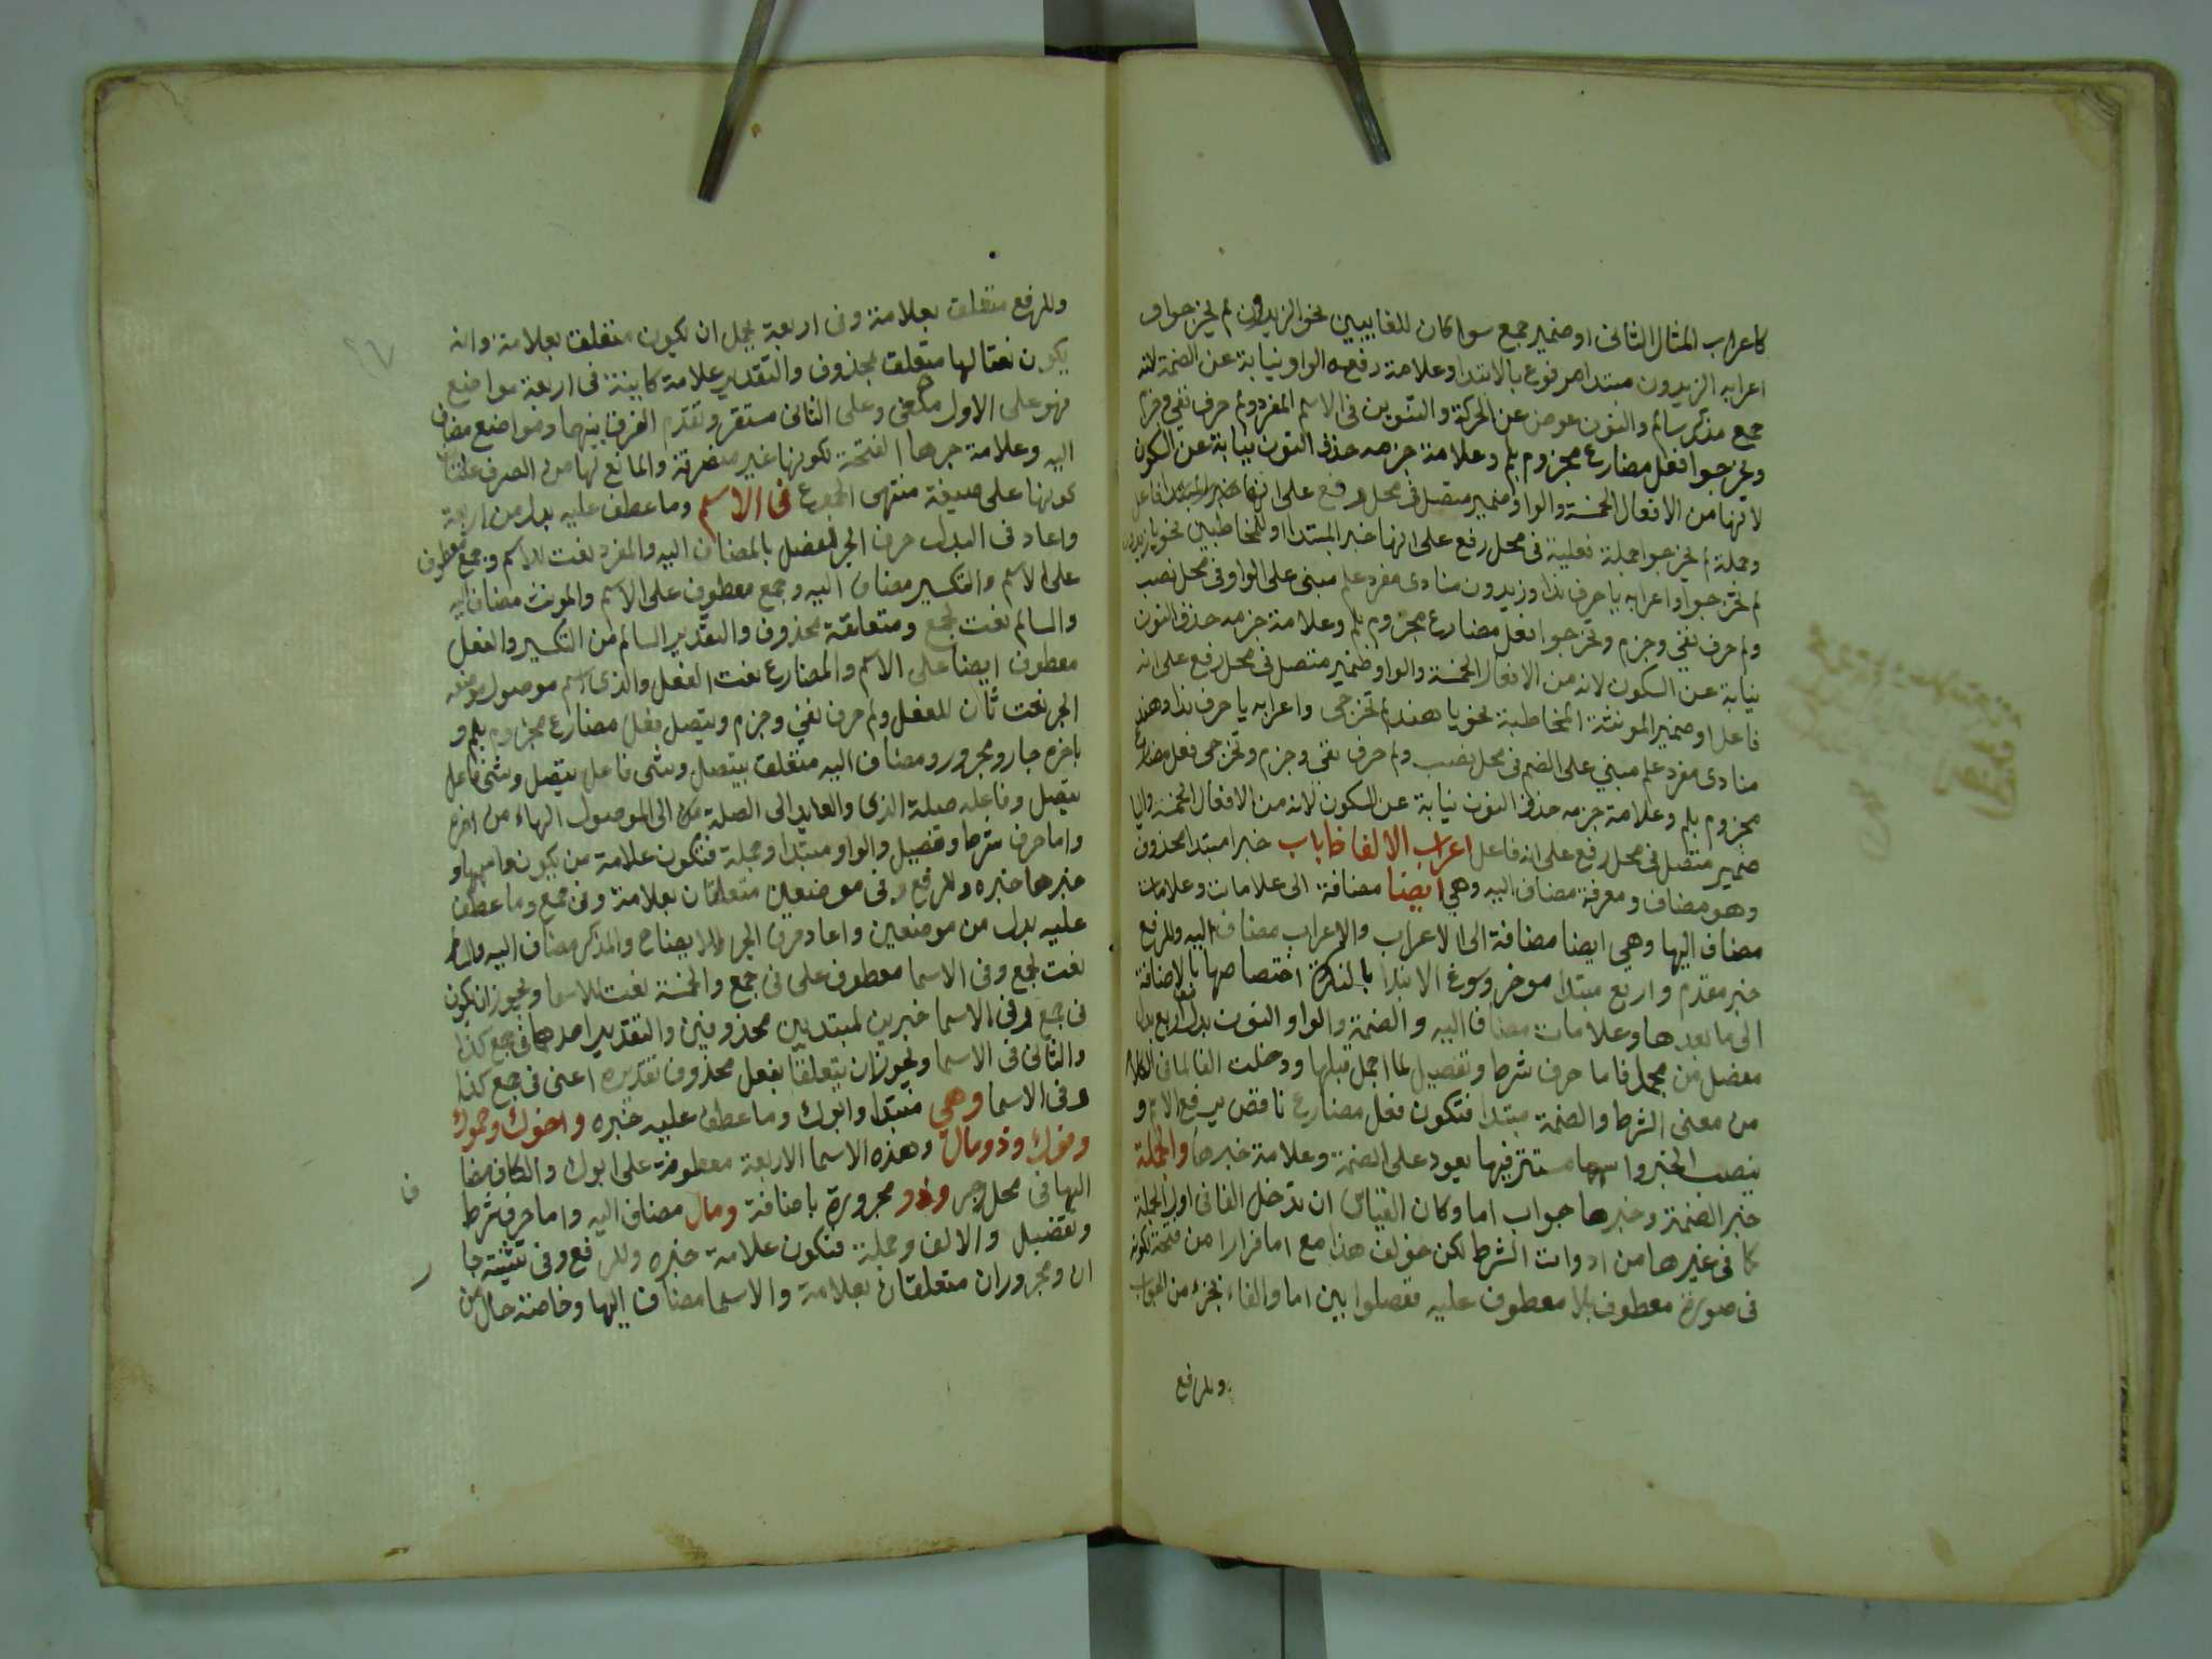 كاعراب المثال الثانى او ضمير جمع سوا كان للغايبين نحو الزيدون لم يخرجوا و
اعرابه الزيدون مبتدا مرفوع بالابتدا وعلامة رفعه الواو نيابة عن الضمة لانه
جمع مذكر سالم والنون عوض عن الحركة والتنوين فى الاسم المفرد ولم حرف نفي وجزم
ويخرجوا فعل مضارع مجزوم بلم وعلامة جزمه حذف النون نيابة عن السكون
لانها من الافعال الخمسة والواو ضمير متصل فى محل رفع على انها فاعل
وجملة لم يخرجوا جملة فعلية فى محل رفع على انها خبر المبتدا او للمخاطبين نحو يا زيدون
لم تخرجوا واعرابه يا حرف ندا وزيدون منادى مفرد علم مبنى على الواو فى محل نصب
ولم حرف نفي وجزم وتخرجوا فعل مضارع مجزوم بلم وعلامة جزمه حذف النون
نيابة عن السكون لانه من الافعال الخمسة والواو ضمير متصل فى محل رفع على انه
فاعل او ضمير المونثة المخاطبة نحو يا هند لم تخرجى واعرابه يا حرف ندا وهند
منادى مفرد علم مبني على الضم فى محل نصب ولم حرف نفي وجزم وتخرجى فعل مضارع
مجزوم بلم وعلامة جزمه حذف النون نيابة عن السكون لانه من الافعال الخمسة واليا
ضمير متصل فى محل رفع على انه فاعل اعراب الالفاظ باب خبر مبتدا محذوف
وهو مضاف ومعرفة مضاف اليه وهي ايضا مضافة الى علامات وعلامات
مضاف اليها وهي ايضا مضافة الى الاعراب والاعراب مضاف اليه وللرفع
خبر مقدم واربع مبتدا موخر وسوغ الابتدا بالنكرة اختصاصها بالاضافة
الى ما بعدها وعلامات مضاف اليه والضمة والواو والنون بدل اربع بدل
مفصل من مجمل فاما حرف شرط وتفصيل لما اجمل قبلها ودخلت الفا لما فى الكلام
من معنى الشرط والضمة مبتدا فتكون فعل مضارع ناقص يرفع الاسم و
ينصب الخبر واسمها مستتر فيها يعود على الضمة وعلامة خبرها والجملة
خبر الضمة وخبرها جواب اما وكان القياس ان تدخل الفا فى اول الجملة
كما فى غيرها من ادوات الشرط لكن خولف هذا مع اما فرارا من قبحه لكونه
فى صورة معطوف بلا معطوف عليه ففصلوا بين اما والفاء بجزء من الجواب
وللرفع
وللرفع متعلق بعلامة وفى اربعة يحتمل ان يكون متعلق بعلامة وانه
يكون نعتا لها متعلق بمحذوف والتقدير علامة كاينة فى اربعة مواضع
فهو على الاول ملغى وعلى الثانى مستقر وتقدم الفرق بينهما ومواضع مضاف
اليه وعلامة جرها الفتحة لكونها غير منصرفة والمانع لها من الصرف
كونها على صيغة منتهى الجموع فى الاسم وما عطف عليه بدل من اربعة
واعاد فى البدل حرف الجر للفصل بالمضاف اليه والمفرد نعت للاسم وجمع معطوف
على الاسم والتكسير مضاف اليه وجمع معطوف على الاسم والمونث مضاف اليه
والسالم نعت لجمع ومتعلقه محذوف والتقدير السالم من التكسير والفعل
معطوف ايضا على الاسم والمضارع نعت الفعل والذى اسم موصول موضعه
الجر نعت ثان للفعل ولم حرف نفي وجزم ويتصل فعل مضارع مجزوم بلم و
باخره جار ومجرور ومضاف اليه متعلق بيتصل وشى فاعل يتصل وشى فاعل
يتصل وفاعله صلة الذى والعايد الى الصلة من الى الموصول الهاء من اخره
واما حرف شرط وتفصيل والواو مبتدا وجملة فتكون علامة من يكون واسمها و
خبرها خبره وللرفع وفى موضعين متعلقان بعلامة وفى جمع وما عطف
عليه بدل من موضعين واعاد حرف الجر للايضاح والمذكر مضاف اليه والسالم
نعت لجمع وفى الاسما معطوف على فى جمع والخمسة نعت للاسما ويجوز ان يكون
فى جمع وفى الاسما خبرين لمبتديين محذوفين والتقدير احدهما فى جمع كذا
والثانى فى الاسما ويجوز ان يتعلقا بفعل محذوف تقديره اعنى فى جمع كذا
وفى الاسما وهي مبتدا وابوك وما عطف عليه خبره واخوك وحموك
وفوك وذو مال وهذه الاسما الاربعة معطوفة على ابوك والكاف مضا
اليها فى محل جر وذو مجرورة باضافة ومال مضاف اليه واما حرف شرط
وتفصيل والالف وجملة فتكون علامة خبره وللرفع وفى تثنية جا
ان ومجروران متعلقان بعلامة والاسما مضاف اليها وخاصة حال من